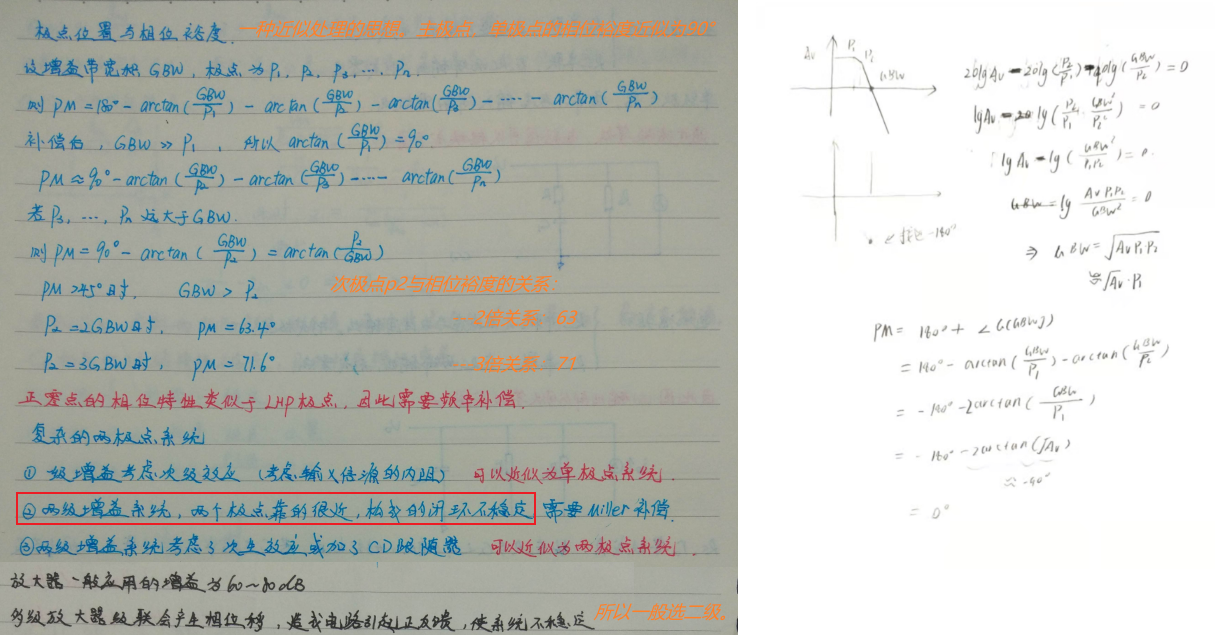 极点位置与相位裕度. 一种近似处理的思想, 主极点、单极点的相位裕度近似为90°
设增益带宽积 GBW, 极点为 P₁, P₂, P₃, ⋯, Pₙ.
则 PM = 180° - arctan(GBW/P₁) - arctan(GBW/P₂) - arctan(GBW/P₃) - ⋯⋯ - arctan(GBW/Pₙ)
补偿后, GBW >> P₁, 所以 arctan(GBW/P₁) = 90°.
PM ≈ 90° - arctan(GBW/P₂) - arctan(GBW/P₃) - ⋯⋯ arctan(GBW/Pₙ)
若 P₃, ⋯, Pₙ 远大于 GBW.
则 PM = 90° - arctan(GBW/P₂) = arctan(P₂/GBW)
次极点p2与相位裕度的关系：
PM >45° 时, GBW > P₂
P₂ = 2GBW时, PM = 63.4° ---2倍关系：63
P₂ = 3GBW时, PM = 71.6° ---3倍关系：71
正零点的相位特性类似于 LHP 极点, 因此需要频率补偿.
复杂的两极点系统
① 一级增益考虑次级效应 (考虑输入信源的内阻) 可以近似为单极点系统.
② 两级增益系统, 两个极点靠的很近, 构成的闭环不稳定 需要 Miller 补偿.
③ 两级增益系统考虑了次级效应或加了CD跟随器 可以近似为两极点系统.
放大器一般应用的增益为60~80dB
多级放大器级联会产生相位移, 造成电路引起正反馈, 使系统不稳定 所以一般选二级。
Av P₁ P₂ GBW
∠接近 -180°
20lgAv - 20lg(P₂/P₁) - 40lg(GBW/P₂) = 0
lgAv - lg(P₂/P₁ · GBW²/P₂²) = 0
lgAv - lg(GBW²/P₁P₂) = 0.
lg AvP₁P₂/GBW² = 0
⇒ GBW = √AvP₁P₂
≈ √Av · P₁
PM = 180° + ∠G(GBWj)
= 180° - arctan(GBW/P₁) - arctan(GBW/P₂)
= -180° - 2arctan(GBW/P₁)
= -180° - 2arctan(√Av)
≈ -90°
= 0°